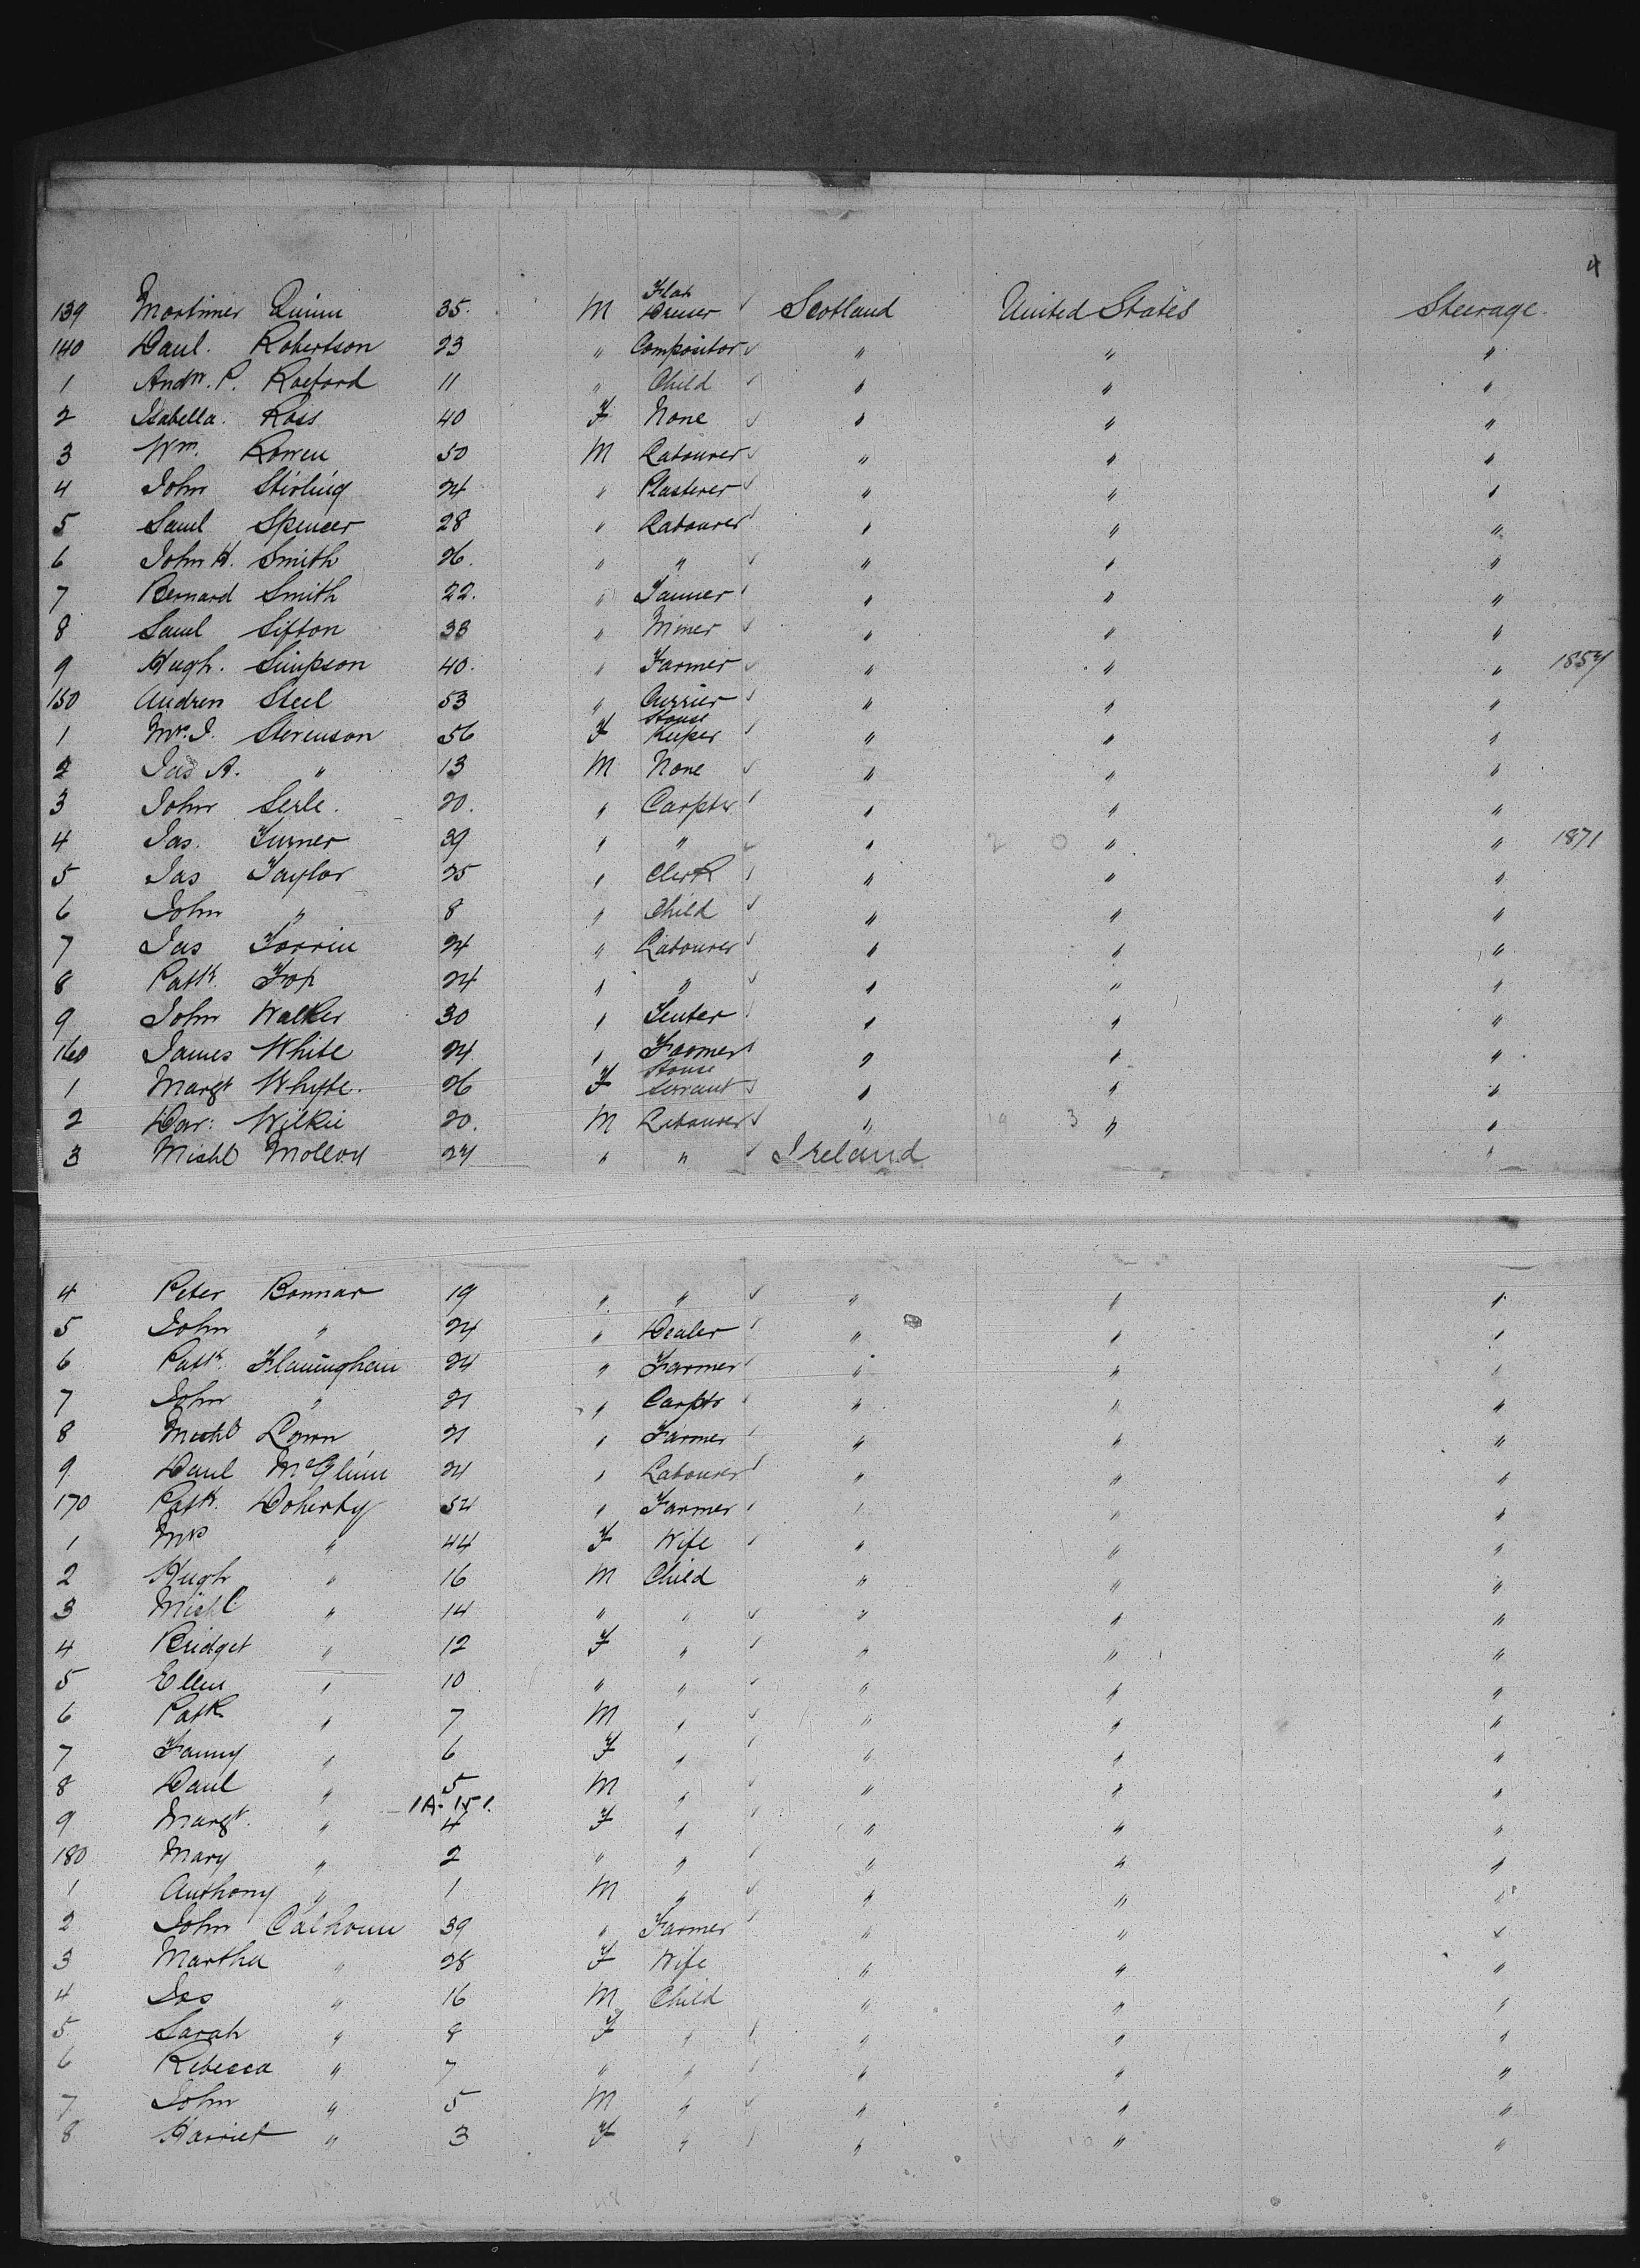 4
139 Mortimer Quinn 35. M Flax Dresser Scotland United States Steerage.
140 Danl. Robertson 23 " Compositor " " "
1 Andw. P. Raeford 11 " Child " " "
2 Isabella Ross 40 F None " " "
3 Wm. Rowen 50 M Labourer " " "
4 John Stirling 24 " Plasterer " " "
5 Saml Spencer 28 " Labourer " " "
6 John H. Smith 26. " " " " "
7 Bernard Smith 22. " Tanner " " "
8 Saml Sifton 33 " Miner " " "
9 Hugh. Simpson 40. " Farmer " " " 1857
150 Andrew Steel 53 " Currier " " "
1 Mrs. J. Stevenson 56 F House Keeper " " "
2 Jas A. " 13 M None " " "
3 John Serle. 20. " Carptr. " " "
4 Jas. Turner 39 " " " " " 1871
5 Jas Taylor 25 " Clerk " " "
6 John " 8 " Child " " "
7 Jas Torrin 24 " Labourer " " "
8 Patk. 24 " " " " "
9 John Walker 30 " Tenter " " "
160 James White 24 " Farmer " " "
1 Margt Whyte. 26 F House Servant " " "
2 Dav: Wilkie 20. M Labourer " " "
3 Michl Molloy 24 " " Ireland " "
4 Peter Bonnar 19 " " " " "
5 John " 24 " Dealer " " "
6 Patk. Flanninghan 24 " Farmer " " "
7 John " 21 " Carptr " " "
8 Michl 21 " Farmer " " "
9 Danl McGlinn 24 " Labourer " " "
170 Patk. Doherty 54 " Farmer " " "
1 Mrs " 44 F Wife " " "
2 Hugh " 16 M Child " " "
3 Michl " 14 " " " " "
4 Bridget " 12 F " " " "
5 Ellen " 10 " " " " "
6 Patk " 7 M " " " "
7 Fanny " 6 F " " " "
8 Danl " 5 M " " " "
9 Margt. " 4 F " " " "
180 Mary " 2 " " " " "
1 Anthony " 1 M " " " "
2 John Calhoun 39 " Farmer " " "
3 Martha " 28 F Wife " " "
4 Jas " 16 M Child " " "
5 Sarah " F " " " "
6 Rebecca " 7 " " " " "
7 John " 5 M " " " "
8 Harriet " 3 F " " " "